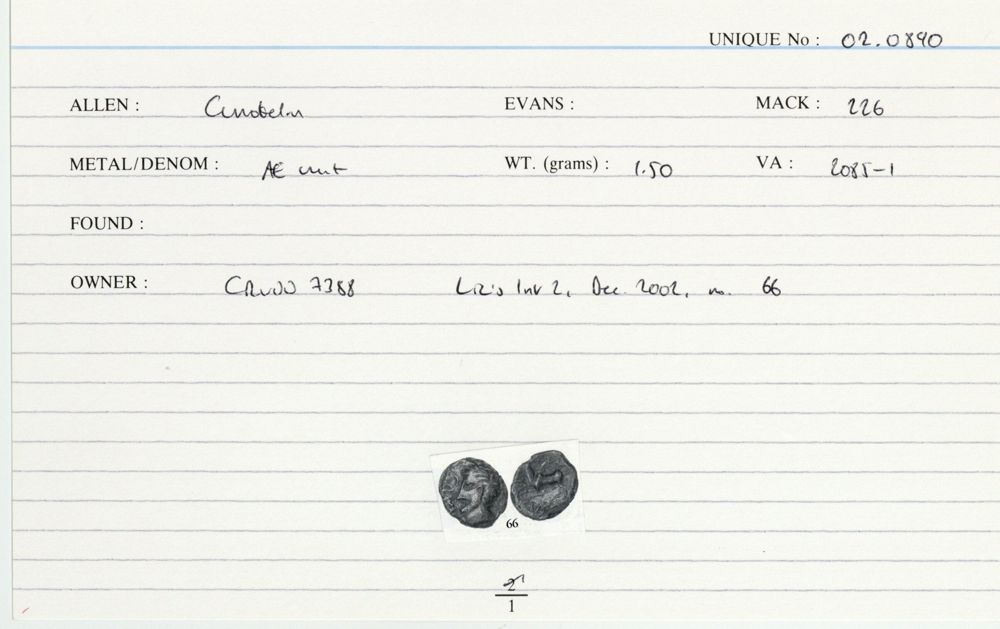 UNIQUE No : 02.0890
ALLEN : Cunobelin EVANS : MACK : 226
METAL/DENOM : AE unit WT. (grams) : 1.50 VA : 2085-1
FOUND :
OWNER : CRUDD 7388 Liz's Inv 2, Dec. 2002, no. 66
66
2
1